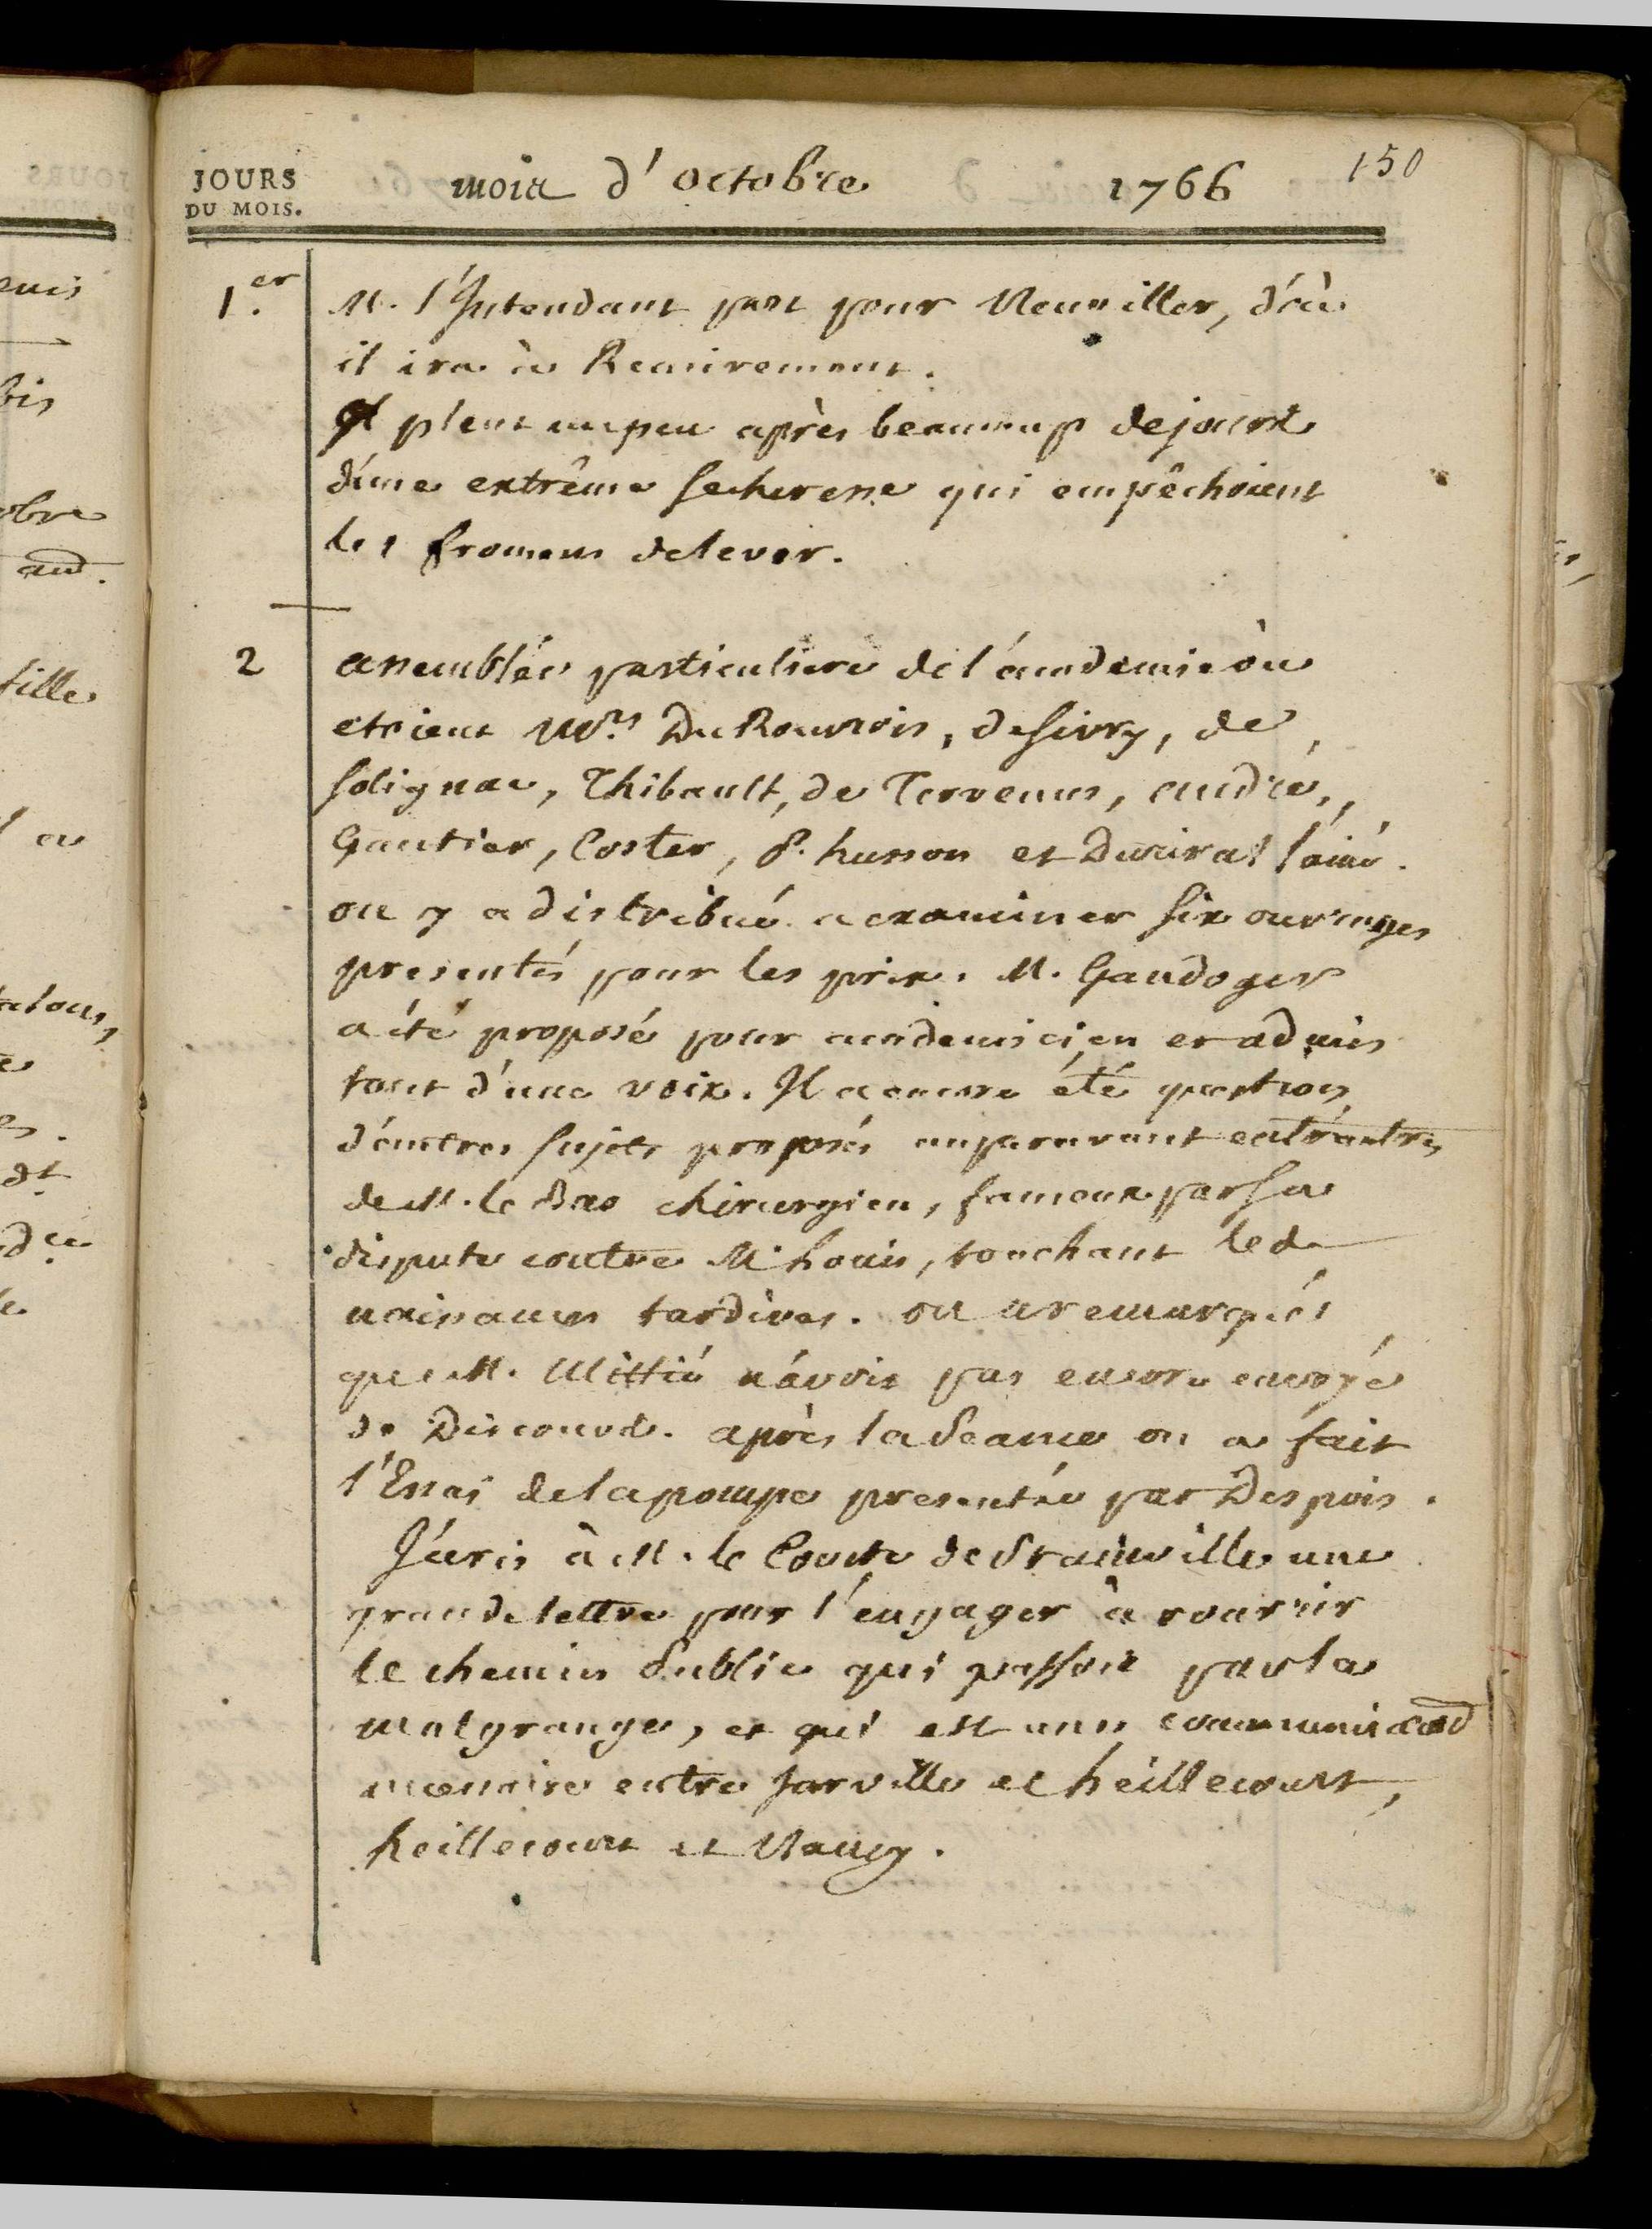 JOURS
DU MOIS.
mois d'octobre 1766
150
1.er
M. l'Intendant part pour Neuviller, d'où
il ira à Remiremont.
Il pleut unpeu après beaucoup dejours
d'une extrême secheresse qui empêchoient
les fromens delever.
2
assemblée particuliere del'academie où
etoient Mrs. DuRouvrois, deSivry, de
Solignac, Thibault, de Tervenus, andré,
Gautier, Coster, P. husson et Durival l'ainé.
on y a distribué a examiner six ouvrages
presentés pour les prix. M. Gandoger
a été proposé pour academicien et admis
tout d'une voix. Il a encore été question
d'autres sujets proposés auparavant entr'autres
de M. le Bas chirurgien, fameux par sa
dispute contre M. Louis, touchant les
naissances tardives. on a remarqué
que M. Mittié n'avoit pas encore envoyé
de Discours. après la Seance on a fait
l'Essai delapompe presentée par Despois.
J'ecris à M. le Comte deStainville une
grande lettre pour l'engager à rouvrir
le chemin Public qui passoit par la
malgrange, et qui est une communicaon
necessaire entre Jarville et heillecourt,
heillecourt et Nancy.
euis
bis
obre
aud.
fille